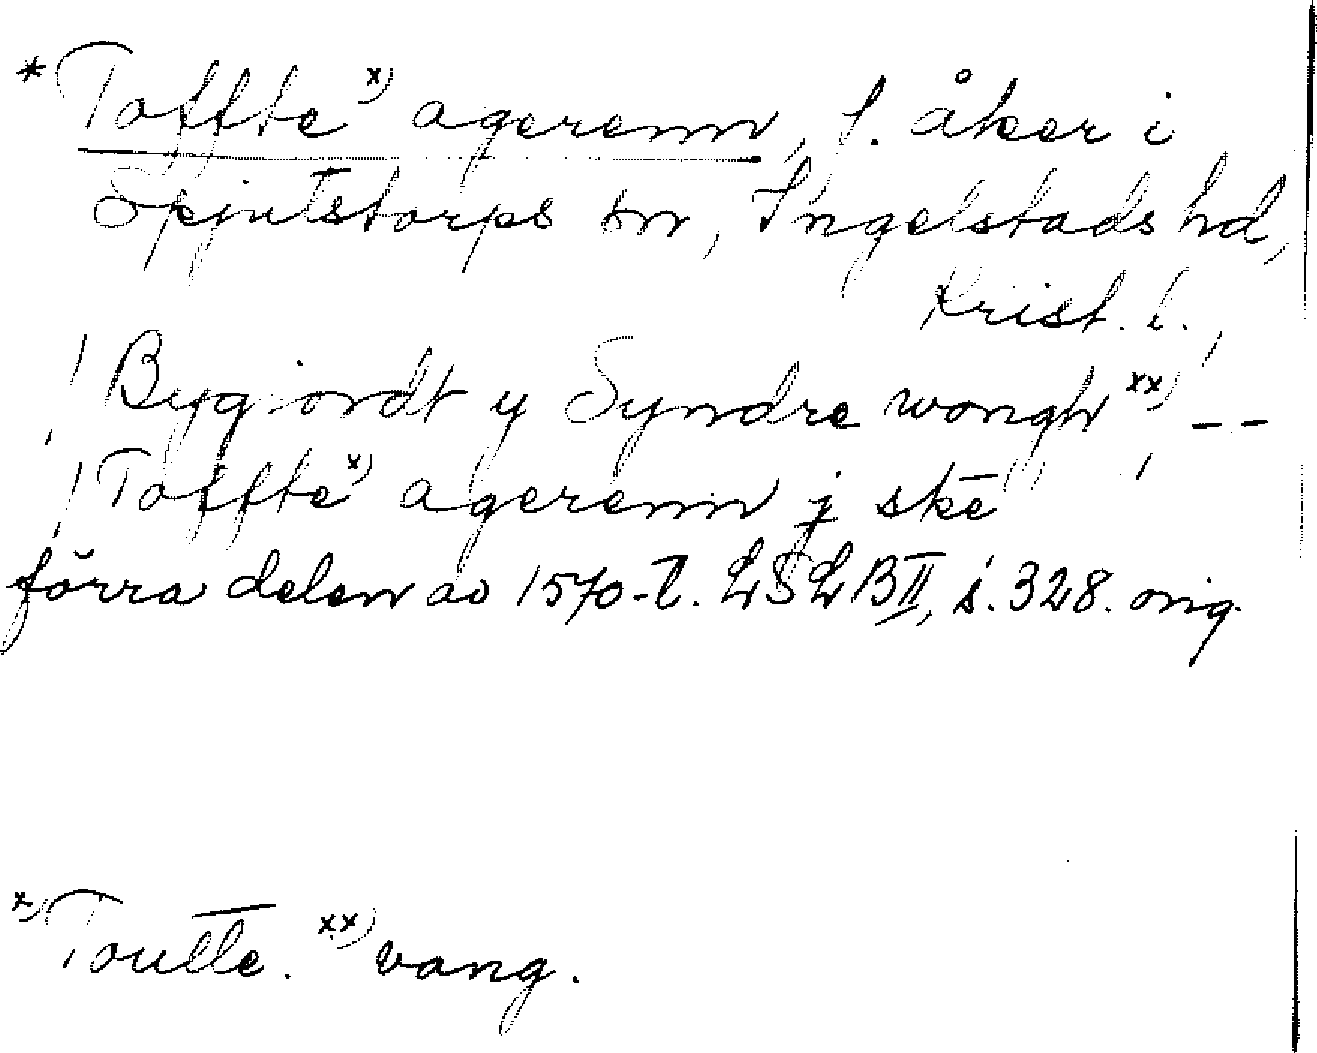 *Toffte x) agerenn, f. åker i
Spjutstorps sn, Ingelstads hd,
Krist. l.,
/ Bygiordt y Syndre wongh xx) / - -
/ Toffte x) agerenn j ske /
förra delen av 1570-t. LSLB II, s. 328. orig.
x) Toutte. xx) vang.